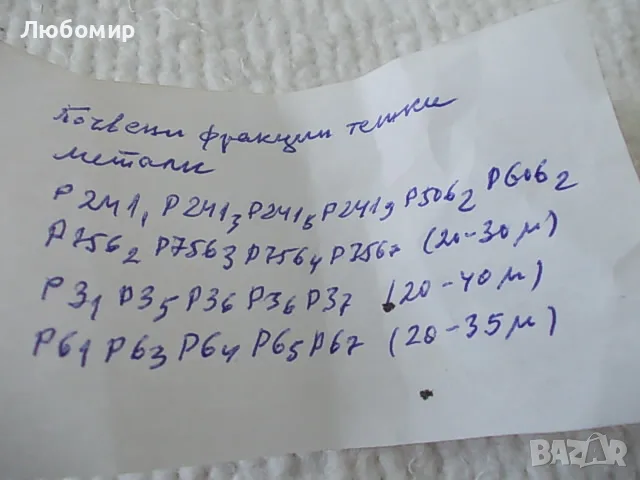 Любомир
Почвени фракции тежки
метали
P241₁ P241₃ P241₅ P241₉ P506₂ P606₂
P756₂ P756₃ P756₄ P756₇ (20-30 μ)
P3₁ P3₅ P3₆ P3₆ P3₇ (20-40 μ)
P6₁ P6₃ P6₄ P6₅ P6₇ (20-35 μ)
BAZAR